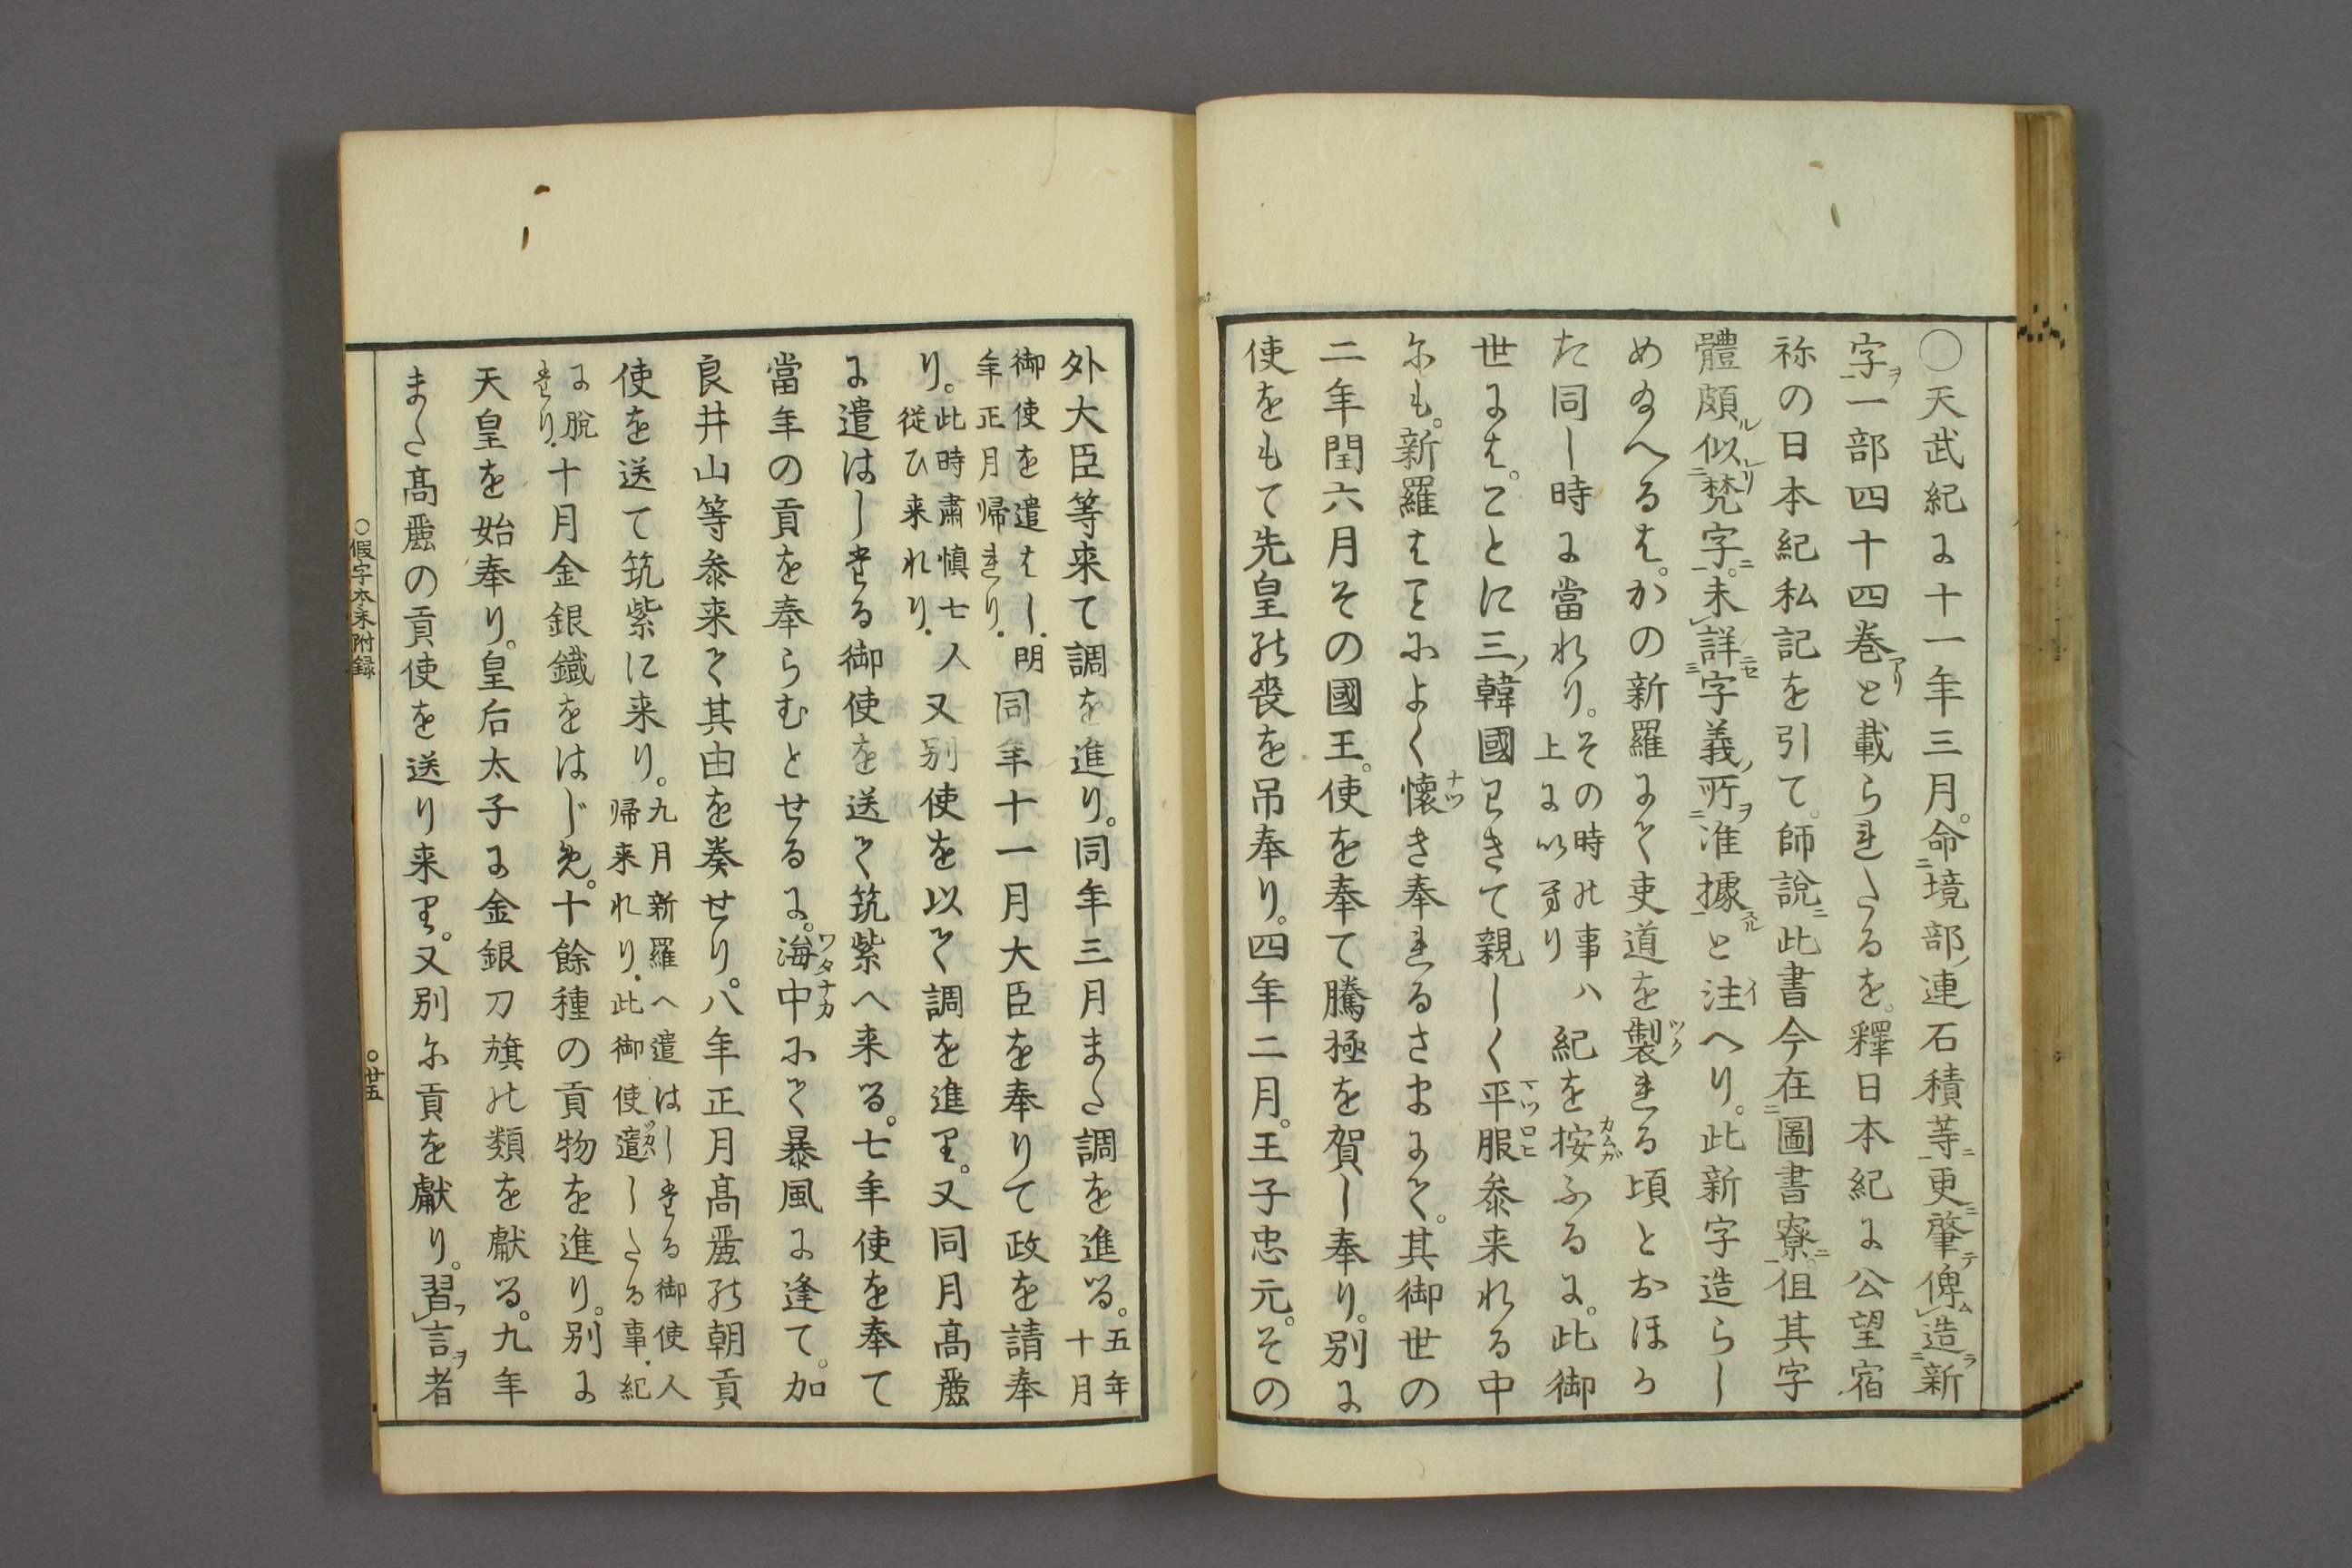 〇天武紀に十一年三月。命境部連石積等更肇俾造新
字一部四十四巻と載られたるを。釋日本紀に公望宿
祢の日本紀私記を引て。師說此書今在圖書寮但其字
體頗似梵字。未詳字義所准據と注へり。此新字造らし
め給へるは。かの新羅にて吏道を製れる頃とおほゆ
た同し時に當れり。その時の事ハ上に以有り紀を按ふるに。此御
世には。ことに三韓國ときて親しく平服参来れる中
にも。新羅はことによく懐き奉れるさまにて。其御世の
二年閏六月その國王。使を奉て騰極を賀し奉り。別に
使をもて先皇の喪を吊奉り。四年二月。王子忠元。その
外大臣等来て調を進り。同年三月また調を進る。五年十月
御使を遣はし。明年正月帰れり。同年十一月大臣を奉りて政を請奉
り。此時肅慎七人従ひ来れり。又別使を以て調を進り。又同月高麗
に遣はしける御使を送て筑紫へ来る。七年使を奉て
當年の貢を奉らむとせるに。海中にて暴風に逢て。加
良井山等参来て其由を奏せり。八年正月高麗の朝貢
使を送て筑紫に来り。九月新羅へ遣はしける御使人帰来れり。此御使遣したる事。紀
に脫けり。十月金銀鐵をはじめ。十餘種の貢物を進り。別に
天皇を始奉り。皇后太子に金銀刀旗の類を獻る。九年
また高麗の貢使を送り来り。又別に貢を獻り。習言者
〇假字本末附録
〇廿五